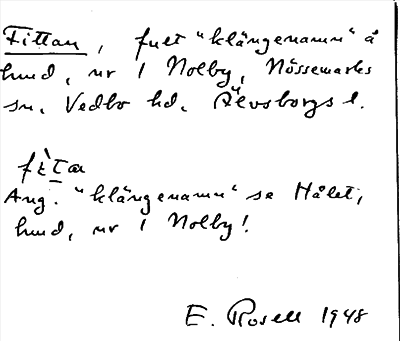 Fittan, fult "klängenamn" å
hmd, nr 1 Nolby, Nössemarks
sn, Vedbo hd. Älvsborgs l.
fìta
Ang. "klängenamn" se Hålet,
hmd, nr 1 Nolby!
E. Rosell 1948